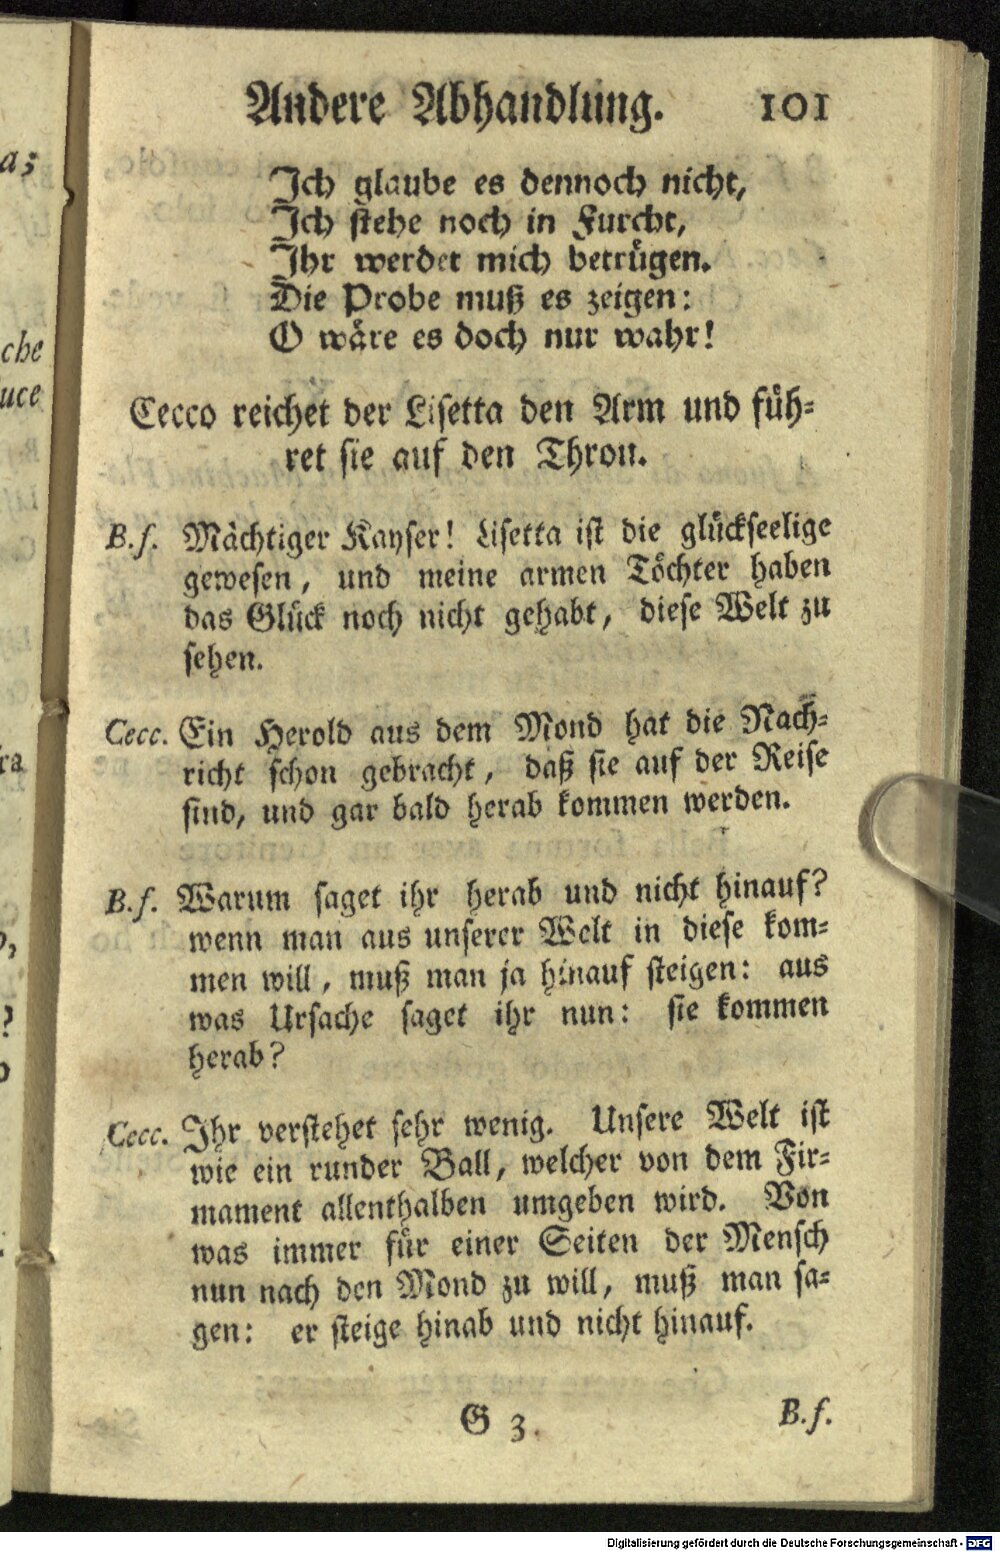 Andere Abhandlung. 101
Ich glaube es dennoch nicht,
Ich stehe noch in Furcht,
Ihr werdet mich betrügen.
Die Probe muß es zeigen:
O wäre es doch nur wahr!
Cecco reichet der Lisetta den Arm und füh-
ret sie auf den Thron.
B.f. Mächtiger Kayser! Lisetta ist die glückseelige
gewesen, und meine armen Töchter haben
das Glück noch nicht gehabt, diese Welt zu
sehen.
Cecc. Ein Herold aus dem Mond hat die Nach-
richt schon gebracht, daß sie auf der Reise
sind, und gar bald herab kommen werden.
B.f. Warum saget ihr herab und nicht hinauf?
wenn man aus unserer Welt in diese kom-
men will, muß man ja hinauf steigen: aus
was Ursache saget ihr nun: sie kommen
herab?
Cecc. Ihr verstehet sehr wenig. Unsere Welt ist
wie ein runder Ball, welcher von dem Fir-
mament allenthalben umgeben wird. Von
was immer für einer Seiten der Mensch
nun nach den Mond zu will, muß man sa-
gen: er steige hinab und nicht hinauf.
G 3. B.f.
a;
che
uce
ra
?
Digitalisierung gefördert durch die Deutsche Forschungsgemeinschaft - DFG